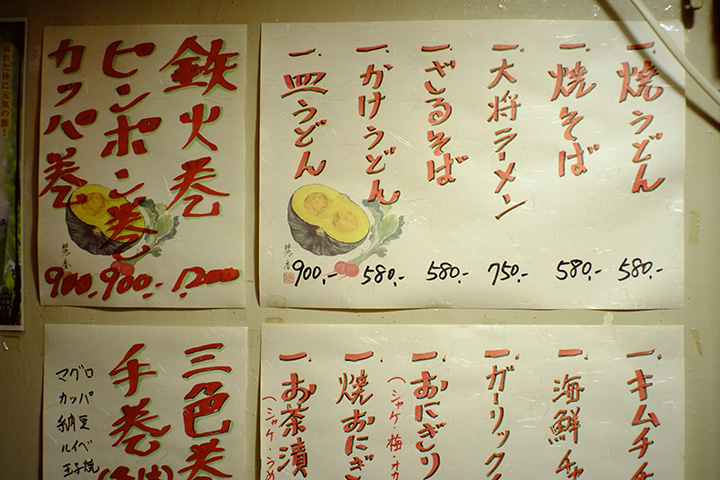 鉄火巻 1,200
ピンポン巻 900.-
カッパ巻 900.-
一.焼うどん 580.-
一.焼そば 580.-
一.大将ラーメン 750.-
一.ざるそば 580.-
一.かけうどん 580.-
一.皿うどん 900.-
三色巻
手巻
マグロ
カッパ
納豆
ルイベ
玉子焼
一.キムチチ
一.海鮮チャ
一.ガーリック
一.おにぎり
(シャケ・梅・オカ
一.焼おにぎ
一.お茶漬
(シャケ・うめ